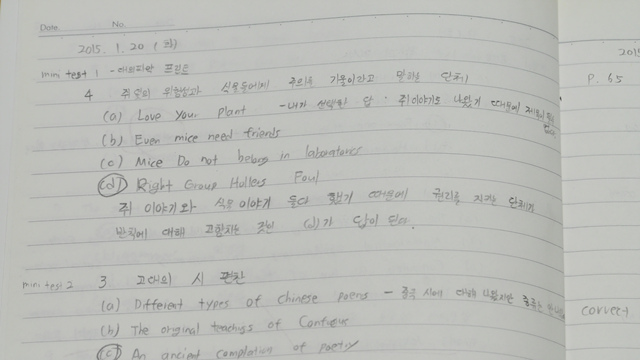 Date. No.
2015. 1. 20 (화)
2015
mini test 1 - 프린트
P. 65
4 쥐 위험성과 식물들에게 주의를 기울이라고 말하는 단체
(a) Love Your Plant - 내가 선택한 답 : 쥐이야기도 나왔기 때문에
(b) Even mice need friends
(c) Mice Do not belong in laboratories
(d) Right Group Hullers Foul
쥐 이야기와 식물 이야기 둘다 했기 때문에 권리를 지키는 단체가
반칙에 대해 (d)가 답이 된다.
mini test 2 3 고대의 시 편찬
(a) Different types of Chinese poems - 중국 시에 대해 나왔지만
(b) The original teachings of Confucius
correct
(c) An ancient compilation of poetry